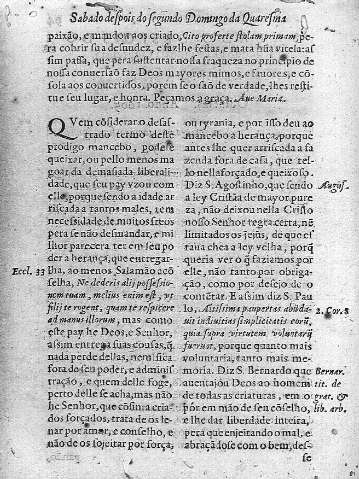 Sabado despois do segundo Domingo da Quaresma
paixão, e mandou aos criado, Cito proferte stolam primam, pera
cobrir sua desnudez, e fazlhe festas, e mata hũa vitela: as
sim passa, que pera sustentar nossa fraqueza no principio de
nossa conuersaõ faz Deos mayores mimos, e fauores, e cõ
sola aos conuertidos, porem se o saõ de verdade, lhes resti
tue seu lugar, e honra. Peçamos a graça. Aue Maria.
QVem cõsiderar o desas
trado termo deste
prodigo mancebo, pode
queixar, ou pello menos ma
goar da demasiada liberali-
dade, que seu pay vzou com
elle, porque sendo a idade ar
riscada a tantos males, tem
necessidade de muitos freos
pera se não desmandar, e mi
lhor parecera ter em seu po
der a herança, que entregar-
Eccl. 33
lha, ao menos Salamão acõ
selha, Ne dederis alij possessio-
nem tuam, melius enim est, vt
filij te rogent, quam te respicere
ad manus illorum, mas como
este pay he Deos, e Senhor,
assim entrega suas cousas, q̃
nada perde dellas, nem fica
fora do seu poder, e adminis
tração, e quem delle foge,
perto delle se acha, mas não
he Senhor, que cõsina a cria-
dos forçados, trata de os le-
nar por amor, e conselho, e
não de os sojeitar por força,
ou tyrania, e por isso deu ao
mancebo a herança, porque
antes lhe quer arriscada a fa
zenda fora de casa, que tel-
lo nella forçado, e queixoso.
Diz S. Agostinho, que sendo
August.
a ley Cristãa de mayor pure
za, não deixou nella Cristo
nosso Senhor regra certa, nẽ
limitados os jejũs, de que es
taua chea a ley velha, porq̃
queria vero q̃ faziamos por
elle, não tanto por obriga-
ção, como por desejo de o
contẽtar. E assim diz S. Pau
lo, Altissima paupertas abũdauit
2. Cor. 8
in diuitias simplicitatis eorũ,
quia supra virtutem voluntarij
fuerunt, porque quanto mais
voluntaria, tanto mais me-
moria. Diz S. Bernardo que
Bernar.
auentajou Deos ao homem
tit. de
de todas as criaturas, em o
grat. &
pòr em mão de seu cõselho,
lib. arb.
e lhe dar liberdade inteira,
pera que enjeitando o mal, e
abraçãdose com o bem, des-
se